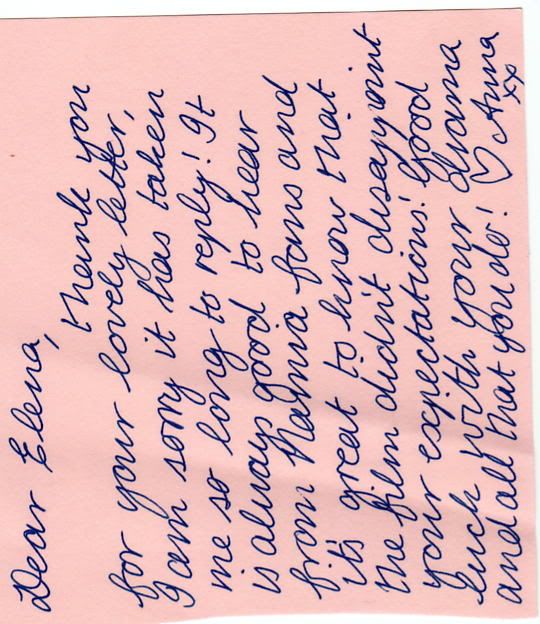 Dear Elena,
thank you
for your lovely letter,
I am sorry it has taken
me so long to reply! It
is always good to hear
from Narnia fans and
it's great to know that
the film didn't disappoint
your expectations! Good
luck with your drama
and all that you do! ♡ Anna
xx